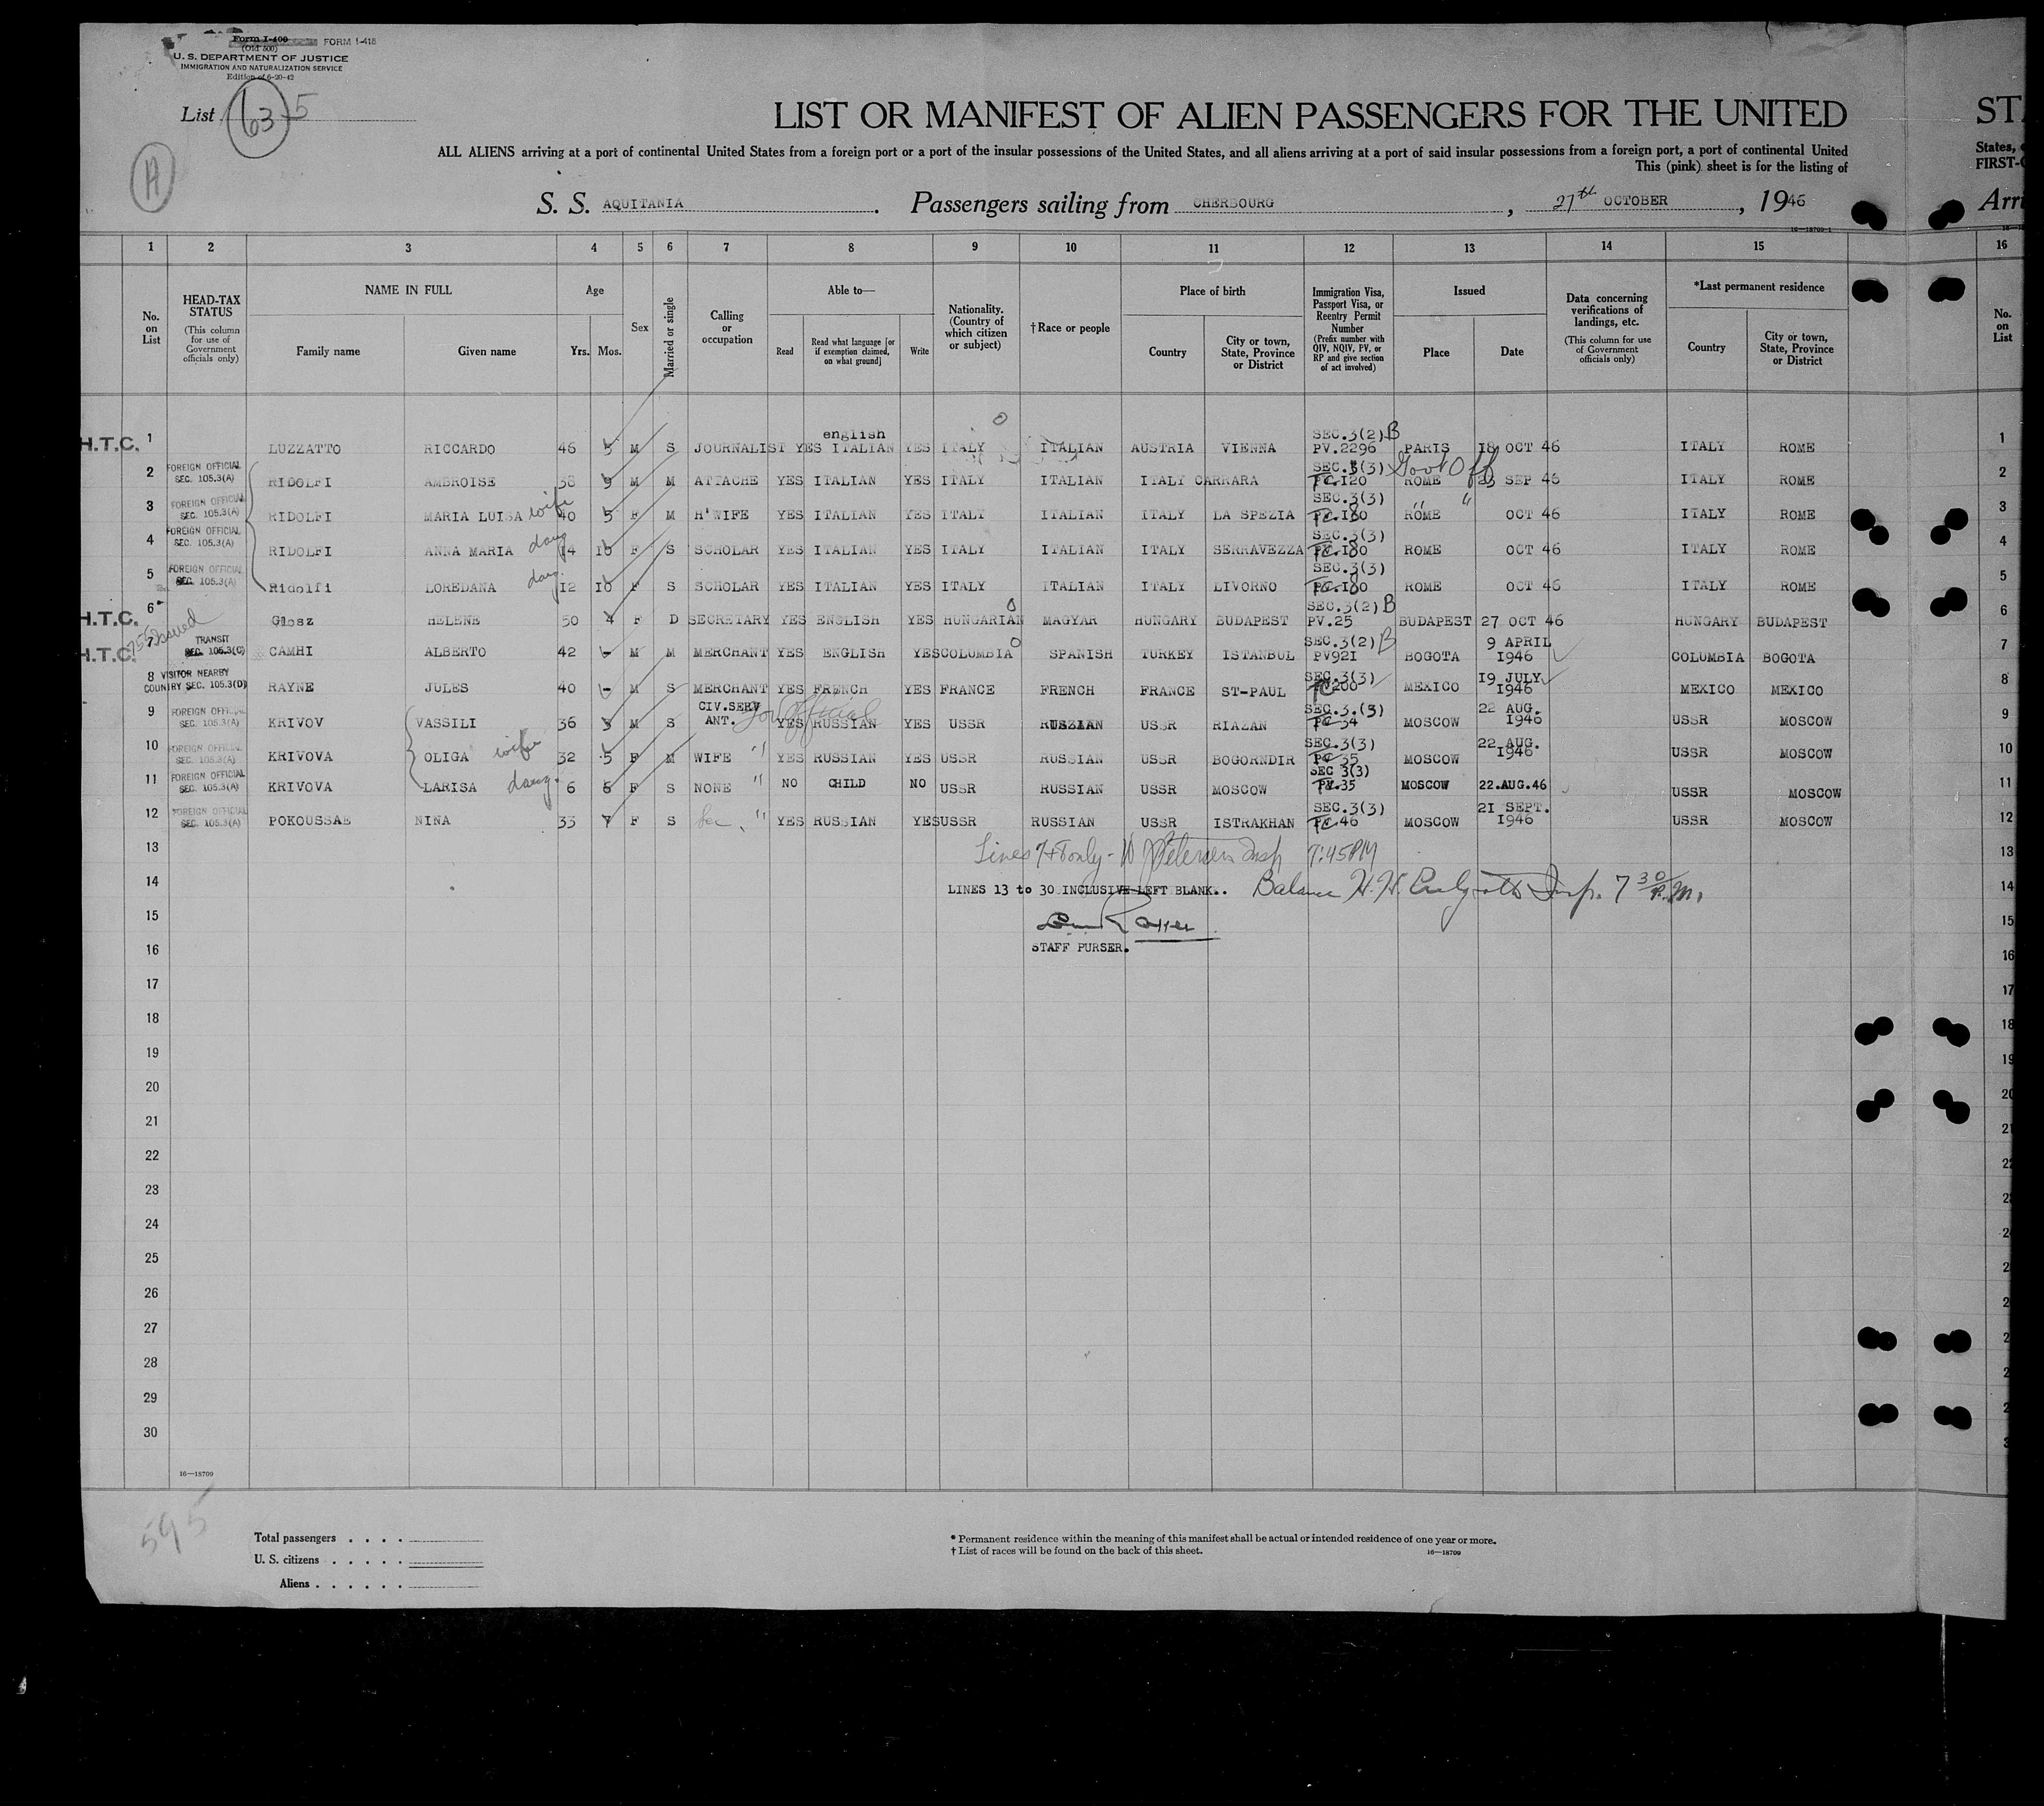 Form I-400 FORM I-418
(Old 500)
U. S. DEPARTMENT OF JUSTICE
IMMIGRATION AND NATURALIZATION SERVICE
Edition of 6-20-42
List 63 5
H
LIST OR MANIFEST OF ALIEN PASSENGERS FOR THE UNITED
ALL ALIENS arriving at a port of continental United States from a foreign port or a port of the insular possessions of the United States, and all aliens arriving at a port of said insular possessions from a foreign port, a port of continental United States,
This (pink) sheet is for the listing of
FIRST-
S. S. AQUITANIA . Passengers sailing from CHERBOURG , 27th OCTOBER , 1946
Arri
16—18709-1
1 2 3 4 5 6 7 8 9 10 11 12 13 14 15 16
No. on List
HEAD-TAX STATUS (This column for use of Government officials only)
NAME IN FULL Family name Given name
Age Yrs. Mos.
Sex
Married or single
Calling or occupation
Able to— Read Read what language [or if exemption claimed, on what ground] Write
Nationality. (Country of which citizen or subject)
†Race or people
Place of birth Country City or town, State, Province or District
Immigration Visa, Passport Visa, or Reentry Permit Number (Prefix number with QIV, NQIV, PV, or RP and give section of act involved)
Issued Place Date
Data concerning verifications of landings, etc. (This column for use of Government officials only)
*Last permanent residence Country City or town, State, Province or District
No. on List
H.T.C. 1 LUZZATTO RICCARDO 46 5 M S JOURNALIST YES english ITALIAN YES ITALY ITALIAN AUSTRIA VIENNA SEC.3(2)B PV.2296 PARIS 18 OCT 46 ITALY ROME 1
2 FOREIGN OFFICIAL SEC. 105.3(A) RIDOLFI AMBROISE 38 9 M M ATTACHE YES ITALIAN YES ITALY ITALIAN ITALY CARRARA SEC.3(3) I20 Govt Off ROME 23 SEP 46 ITALY ROME 2
3 FOREIGN OFFICIAL SEC. 105.3(A) RIDOLFI MARIA LUISA wife 40 5 F M H'WIFE YES ITALIAN YES ITALY ITALIAN ITALY LA SPEZIA SEC.3(3) I80 ROME " " OCT 46 ITALY ROME 3
4 FOREIGN OFFICIAL SEC. 105.3(A) RIDOLFI ANNA MARIA daug 14 10 F S SCHOLAR YES ITALIAN YES ITALY ITALIAN ITALY SERRAVEZZA SEC.3(3) I80 ROME OCT 46 ITALY ROME 4
5 FOREIGN OFFICIAL SEC. 105.3(A) Ridolfi LOREDANA daug. 12 10 F S SCHOLAR YES ITALIAN YES ITALY ITALIAN ITALY LIVORNO SEC.3(3) I80 ROME OCT 46 ITALY ROME 5
H.T.C. 6 Glosz HELENE 50 4 F D SECRETARY YES ENGLISH YES HUNGARIAN MAGYAR HUNGARY BUDAPEST SEC.3(2)B PV.25 BUDAPEST 27 OCT 46 HUNGARY BUDAPEST 6
H.T.C. Issued 7 TRANSIT SEC. 105.3(C) CAMHI ALBERTO 42 - M M MERCHANT YES ENGLISH YES COLUMBIA SPANISH TURKEY ISTANBUL SEC.3(2)B PV92I BOGOTA 9 APRIL I946 COLUMBIA BOGOTA 7
8 VISITOR NEARBY COUNTRY SEC. 105.3(D) RAYNE JULES 40 - M S MERCHANT YES FRENCH YES FRANCE FRENCH FRANCE ST-PAUL SEC.3(3) 200 MEXICO I9 JULY I946 MEXICO MEXICO 8
9 FOREIGN OFFICIAL SEC. 105.3(A) KRIVOV VASSILI 36 3 M S CIV.SERVANT. Gov Official YES RUSSIAN YES USSR RUSZIAN USSR RIAZAN SEC.3.(3) 34 MOSCOW 22 AUG. I946 USSR MOSCOW 9
10 FOREIGN OFFICIAL SEC. 105.3(A) KRIVOVA OLIGA wife 32 5 F M WIFE " YES RUSSIAN YES USSR RUSSIAN USSR BOGORNDIR SEC.3(3) 35 MOSCOW 22 AUG. I946 USSR MOSCOW 10
11 FOREIGN OFFICIAL SEC. 105.3(A) KRIVOVA LARISA daug. 6 6 F S NONE " NO CHILD NO USSR RUSSIAN USSR MOSCOW SEC 3(3) 35 MOSCOW 22.AUG.46 USSR MOSCOW 11
12 FOREIGN OFFICIAL SEC. 105.3(A) POKOUSSAE NINA 33 7 F S Sec. " YES RUSSIAN YES USSR RUSSIAN USSR ISTRAKHAN SEC.3(3) 46 MOSCOW 2I SEPT. I946 USSR MOSCOW 12
13 Lines 7+8 only - Insp 7:45PM 13
14 LINES 13 to 30 INCLUSIVE LEFT BLANK.. Balance H.H. Insp. 7 30 P.M. 14
15 15
STAFF PURSER.
16 16
17 17
18 18
19 19
20 20
21 21
22 22
23
24
25
26
27
28
29
30
16—18709
595
Total passengers . . . .
U. S. citizens . . . . .
Aliens . . . . . .
* Permanent residence within the meaning of this manifest shall be actual or intended residence of one year or more.
† List of races will be found on the back of this sheet.
16—18709